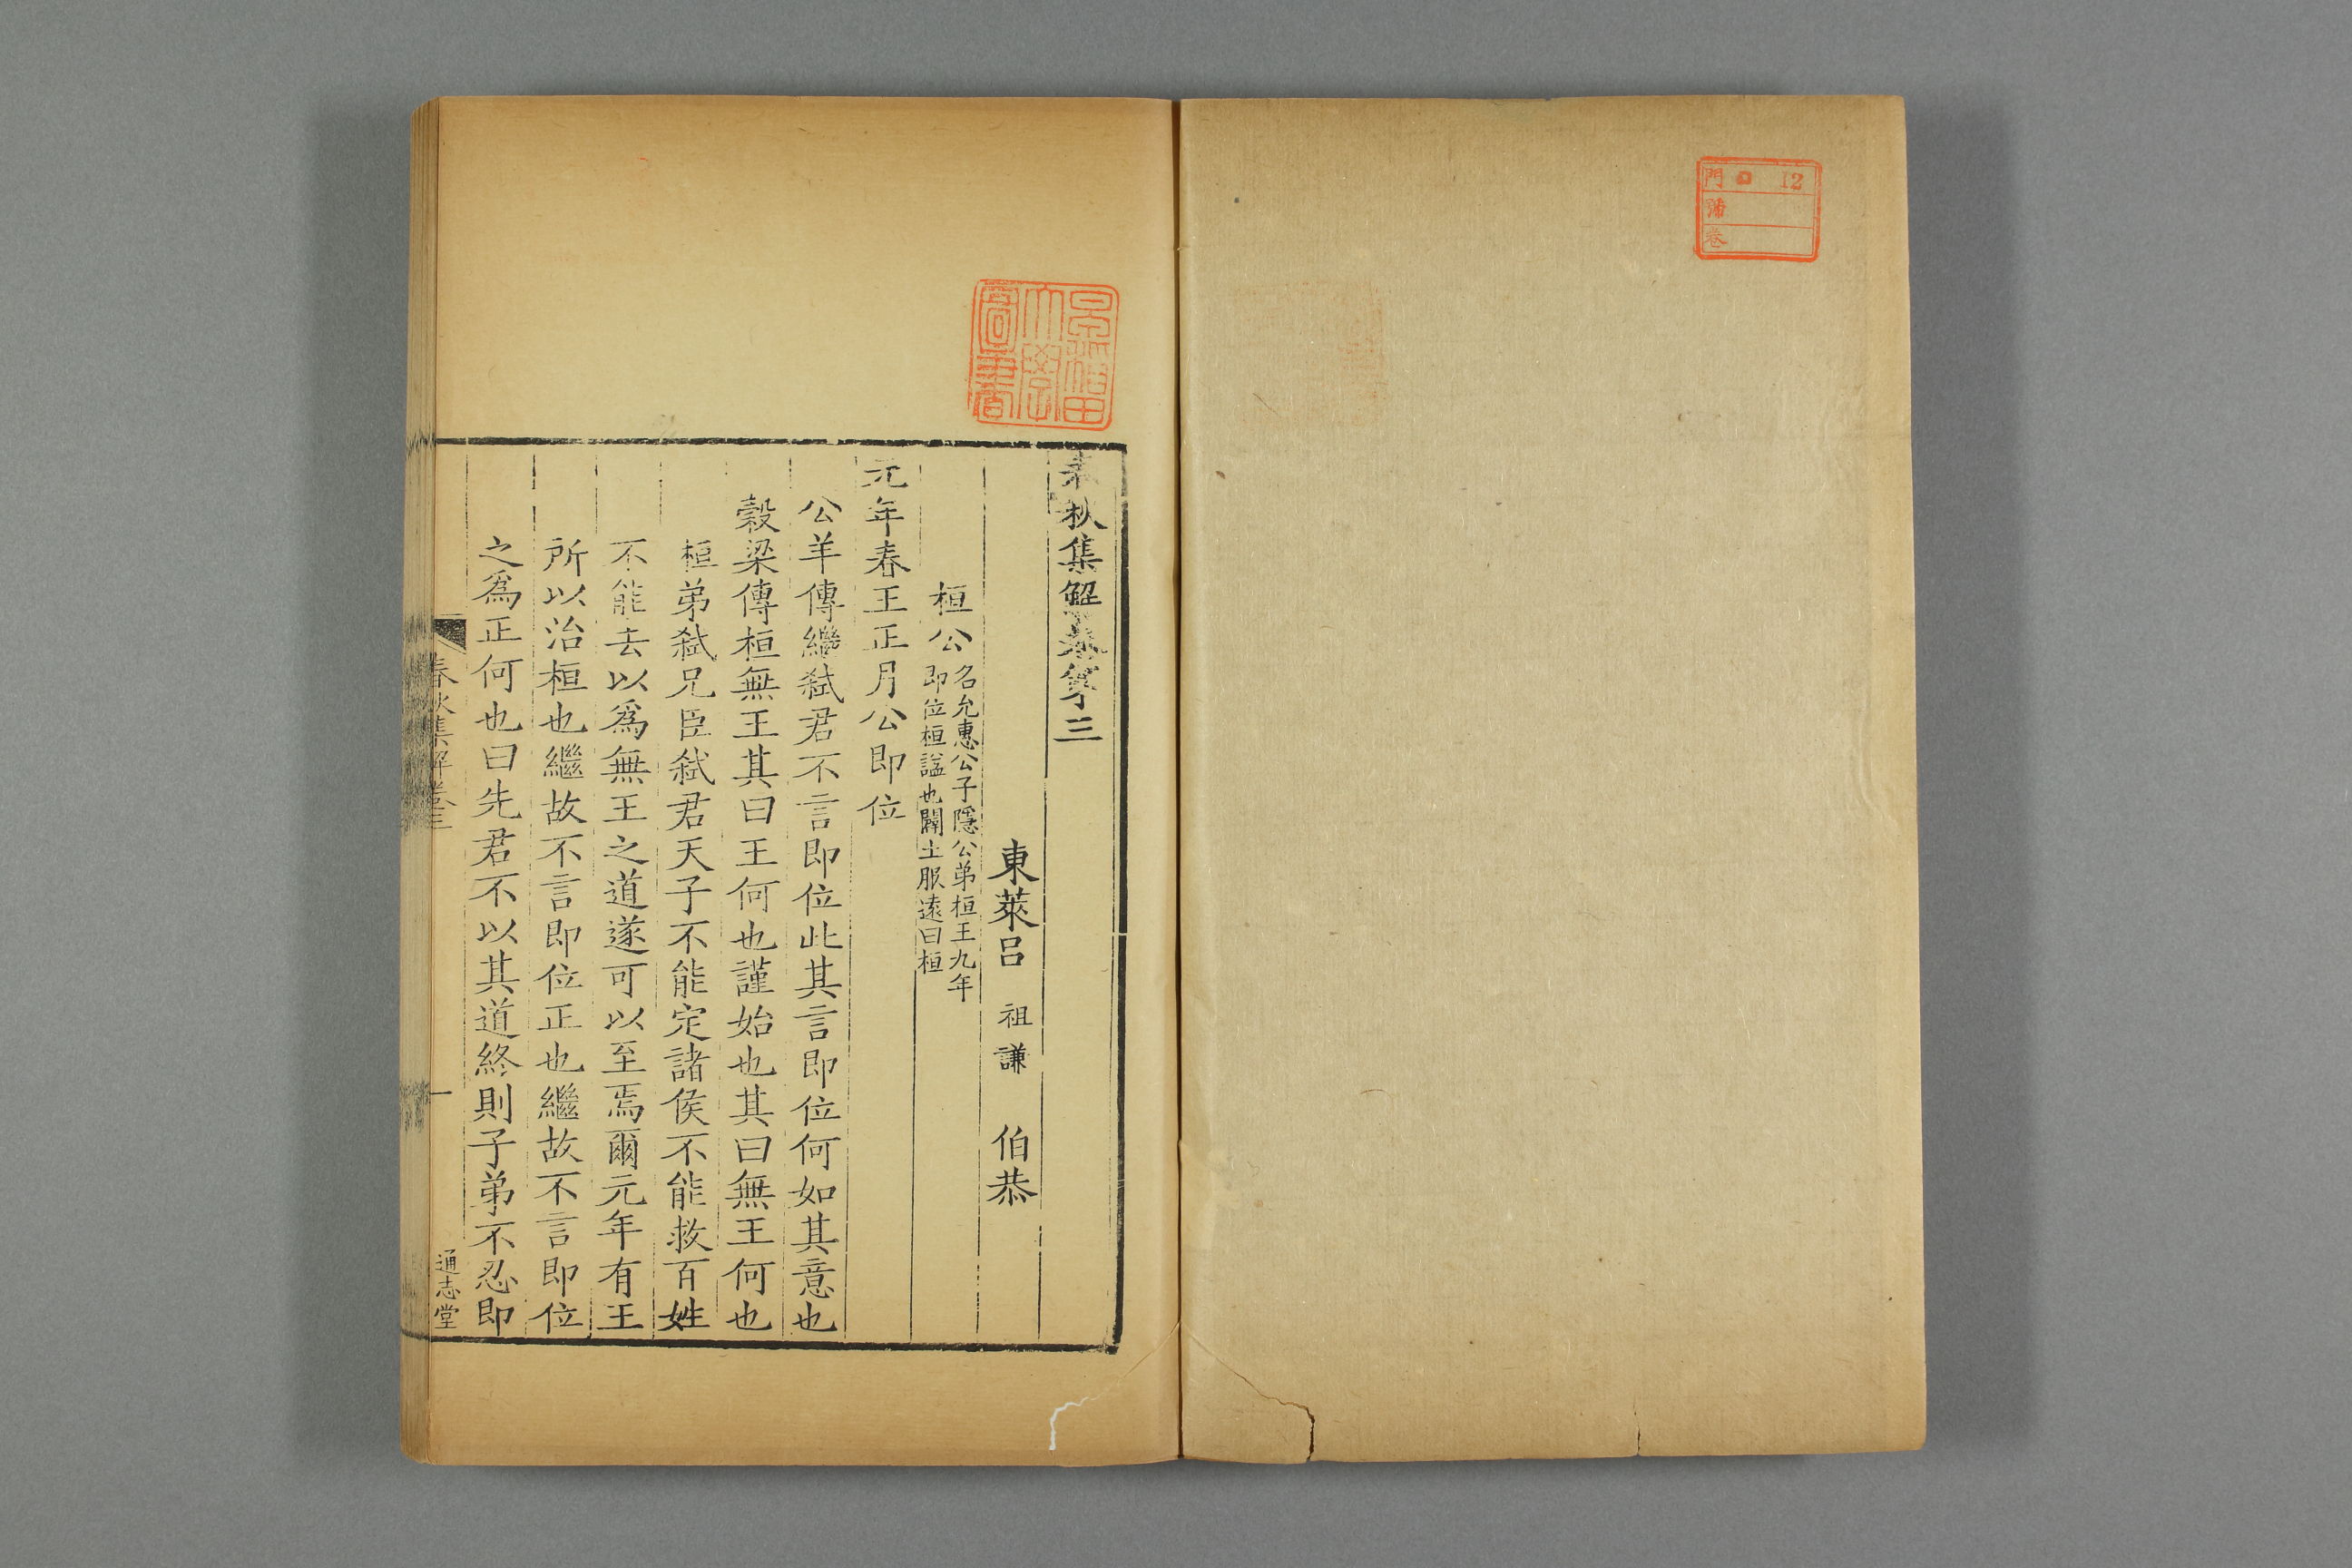 門 口 12
號
卷
早稲田
大學
圖書
春秋集解卷第三
東萊呂 祖謙 伯恭
桓公 名允惠公子隱公弟桓王九年
即位桓諡也闢土服遠曰桓
元年春王正月公即位
公羊傳繼弒君不言即位此其言即位何如其意也
穀梁傳桓無王其曰王何也謹始也其曰無王何也
桓弟弒兄臣弒君天子不能定諸侯不能救百姓
不能去以爲無王之道遂可以至焉爾元年有王
所以治桓也繼故不言即位正也繼故不言即位
之爲正何也曰先君不以其道終則子弟不忍即
春秋集解卷三
一
通志堂